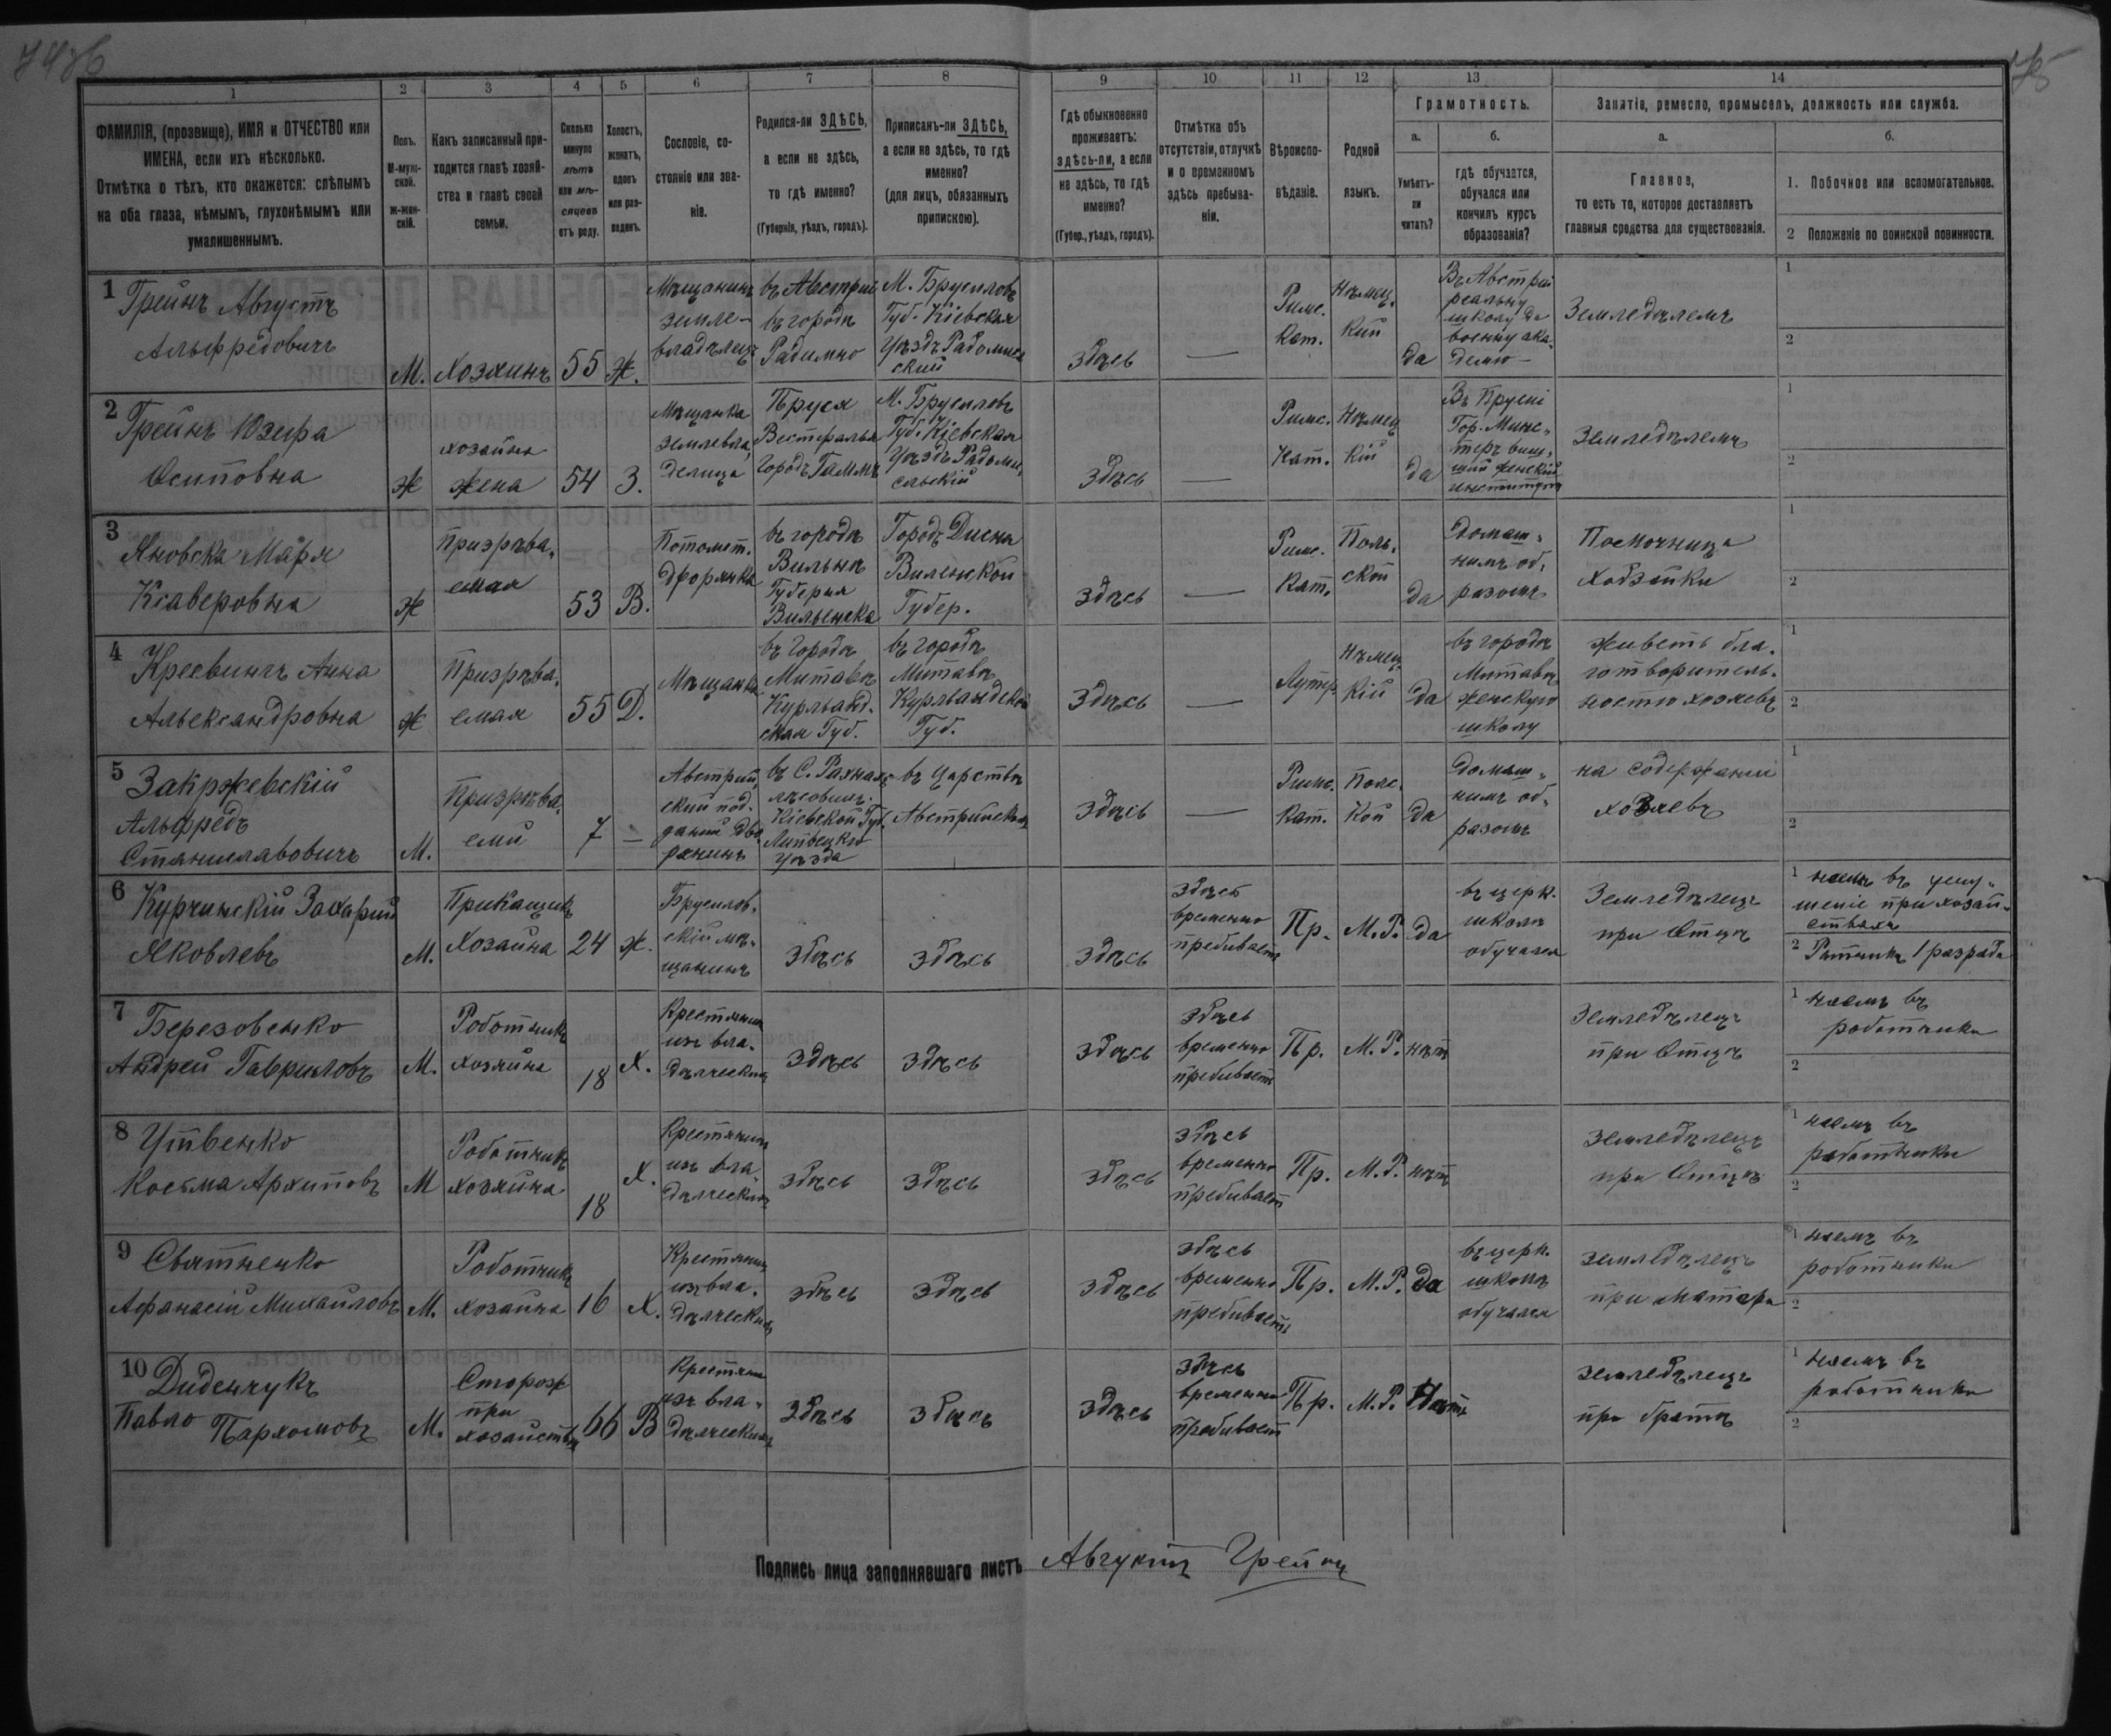 74об
75
1
2
3
4
5
6
7
8
9
10
11
12
13
14
ФАМИЛІЯ, (прозвище), ИМЯ и ОТЧЕСТВО или
ИМЕНА, если ихъ нѣсколько.
Отмѣтка о тѣхъ, кто окажется: слѣпымъ
на оба глаза, нѣмымъ, глухонѣмымъ или
умалишеннымъ.
Полъ.
М-муж-
ской.
Ж-жен-
скій.
Какъ записанный при-
ходится главѣ хозяй-
ства и главѣ своей
семьи.
Сколько
минуло
лѣтъ
или мѣ-
сяцевъ
отъ роду.
Холостъ,
женатъ,
вдовъ
или раз-
веденъ.
Сословіе, со-
стояніе или зва-
ніе.
Родился-ли ЗДѢСЬ,
а если не здѣсь,
то гдѣ именно?
(Губернія, уѣздъ, городъ).
Приписанъ-ли ЗДѢСЬ,
а если не здѣсь, то гдѣ
именно?
(для лицъ, обязанныхъ
припискою).
Гдѣ обыкновенно
проживаетъ:
здѣсь-ли, а если
не здѣсь, то гдѣ
именно?
(Губер., уѣздъ, городъ).
Отмѣтка объ
отсутствіи, отлучкѣ
и о временномъ
здѣсь пребыва-
ніи.
Вѣроиспо-
вѣданіе.
Родной
языкъ.
Грамотность.
а.
Умѣетъ-
ли
читать?
б.
гдѣ обучается,
обучался или
кончилъ курсъ
образованія?
Занятіе, ремесло, промыселъ, должность или служба.
а.
Главное,
то есть то, которое доставляетъ
главныя средства для существованія.
б.
1. Побочное или вспомогательное.
2 Положеніе по воинской повинности.
1
Грейнъ Августъ
Альфредовичъ
М.
Хозяинъ
55
Ж.
Мѣщанинъ
земле-
владѣлецъ
въ Австріи
въ городѣ
Радимно
М. Брусиловъ
Губ. Кіевская
Уѣздъ Радомысл
скій
здѣсь
—
Римс.
Кат.
Нѣмец.
Кий
да
Въ Австріи
реальну
школу да
военну ака-
демію —
Земледѣлемъ
1
2
2
Грейнъ Юзефа
Осиповна
Ж
хозяина
жена
54
З.
Мѣщанка
землевла,
делица
Пруся
Вестфалья
городъ Гаммъ
М. Брусиловъ
Губ. Кіевская
Уѣздъ Радомы,
сльскій
здѣсь
—
Римс.
Кат.
Нѣмец
Кій
да
Въ Прусіі
Гор. Минс-
теръ выш-
шій женскій
институтъ
Земледѣлемъ
1
2
3
Яновска Маря
Ксаверовна
Ж
Призрѣва,
емая
53
В.
Потомст.
дворянка
въ городѣ
Вильнѣ
Губерня
Вильенска
Городъ Дисна
Виленской
Губер.
здѣсь
—
Римс.
Кат.
Поль.
ской
да
домаш-
нимъ об,
разомъ
Помочница
Хозяйки
1
2
4
Креевингъ Анна
Александровна
Ж
Призрѣва,
емая
55
Д.
Мѣщанка
въ городѣ
Митавѣ
Курлянд.
ская Губ.
въ городѣ
Митавѣ
Курляндской
Губ.
здѣсь
—
Лутер.
Нѣмец
кій
да
въ городѣ
Митавѣ
женскую
школу
живетъ бла.
готворитель.
ностю хозяевъ
1
2
5
Закржевскій
Альфредъ
Станиславовичъ
М.
Призрѣва,
емй
7
—
Австрий,
ский под.
даный дво.
ранинъ
въ С. Рахнахъ
лѣсовыхъ.
Кіевской Губ.
Липовецкго
уѣзда
въ Царствѣ
Австрийском
здѣсь
—
Римс.
Кат.
Полс.
Кой
да
домаш-
нимъ об,
разомъ
на содержании
хозяевъ
1
2
6
Курчинскій Захарий
Яковлевъ
М.
Прикащикъ
Хозаина
24
Ж.
Брусилов.
скій мѣ-
щанинъ
здѣсь
здѣсь
здѣсь
здѣсь
временно
пребываетъ
Пр.
М.Р.
да
въ церк.
школѣ
обучался
Земледѣлецъ
при Отцѣ
1
наемъ въ
при хозяй-
ствахъ
2
Ратникъ 1 разрада
7
Березовенко
Андрей Гавриловъ
М.
Роботникъ
хозяина
18
Х.
Крестянинъ
изъ вла.
дѣлческихъ
здѣсь
здѣсь
здѣсь
здѣсь
временно
пребываетъ
Пр.
М.Р.
нѣт
Земледѣлецъ
при Отцѣ
1
наемъ въ
работники
2
8
Утвенко
Косьма Архиповъ
М
Роботникъ
хозяина
18
Х.
Крестянинъ
изъ вла
дѣлческихъ
здѣсь
здѣсь
здѣсь
здѣсь
временно
пребывает
Пр.
М.Р.
нѣтъ
земледѣлецъ
при Отцѣ
1
наемъ въ
работники
2
9
Святненко
Афанасій Михайловъ
М.
Роботникъ
хозаина
16
Х.
Крестянинъ
изъ вла.
дѣлческихъ
здѣсь
здѣсь
здѣсь
здѣсь
временно
пребываетъ
Пр.
М.Р.
да
въ церк.
школѣ
обучался
земледѣлецъ
при матери
1
наемъ въ
работники
2
10
Диденчукъ
Павло Пархомовъ
М.
Сторож
при
хозаиствѣ
66
В
Крестянин
изъ вла-
дѣлческихъ
здѣсь
здѣсь
здѣсь
здѣсь
временно
пребывает
Пр.
М.Р.
Нѣтъ
земледѣлецъ
при братѣ
1
наемъ въ
работники
2
Подпись лица заполнявшаго листъ Августъ Грейнъ